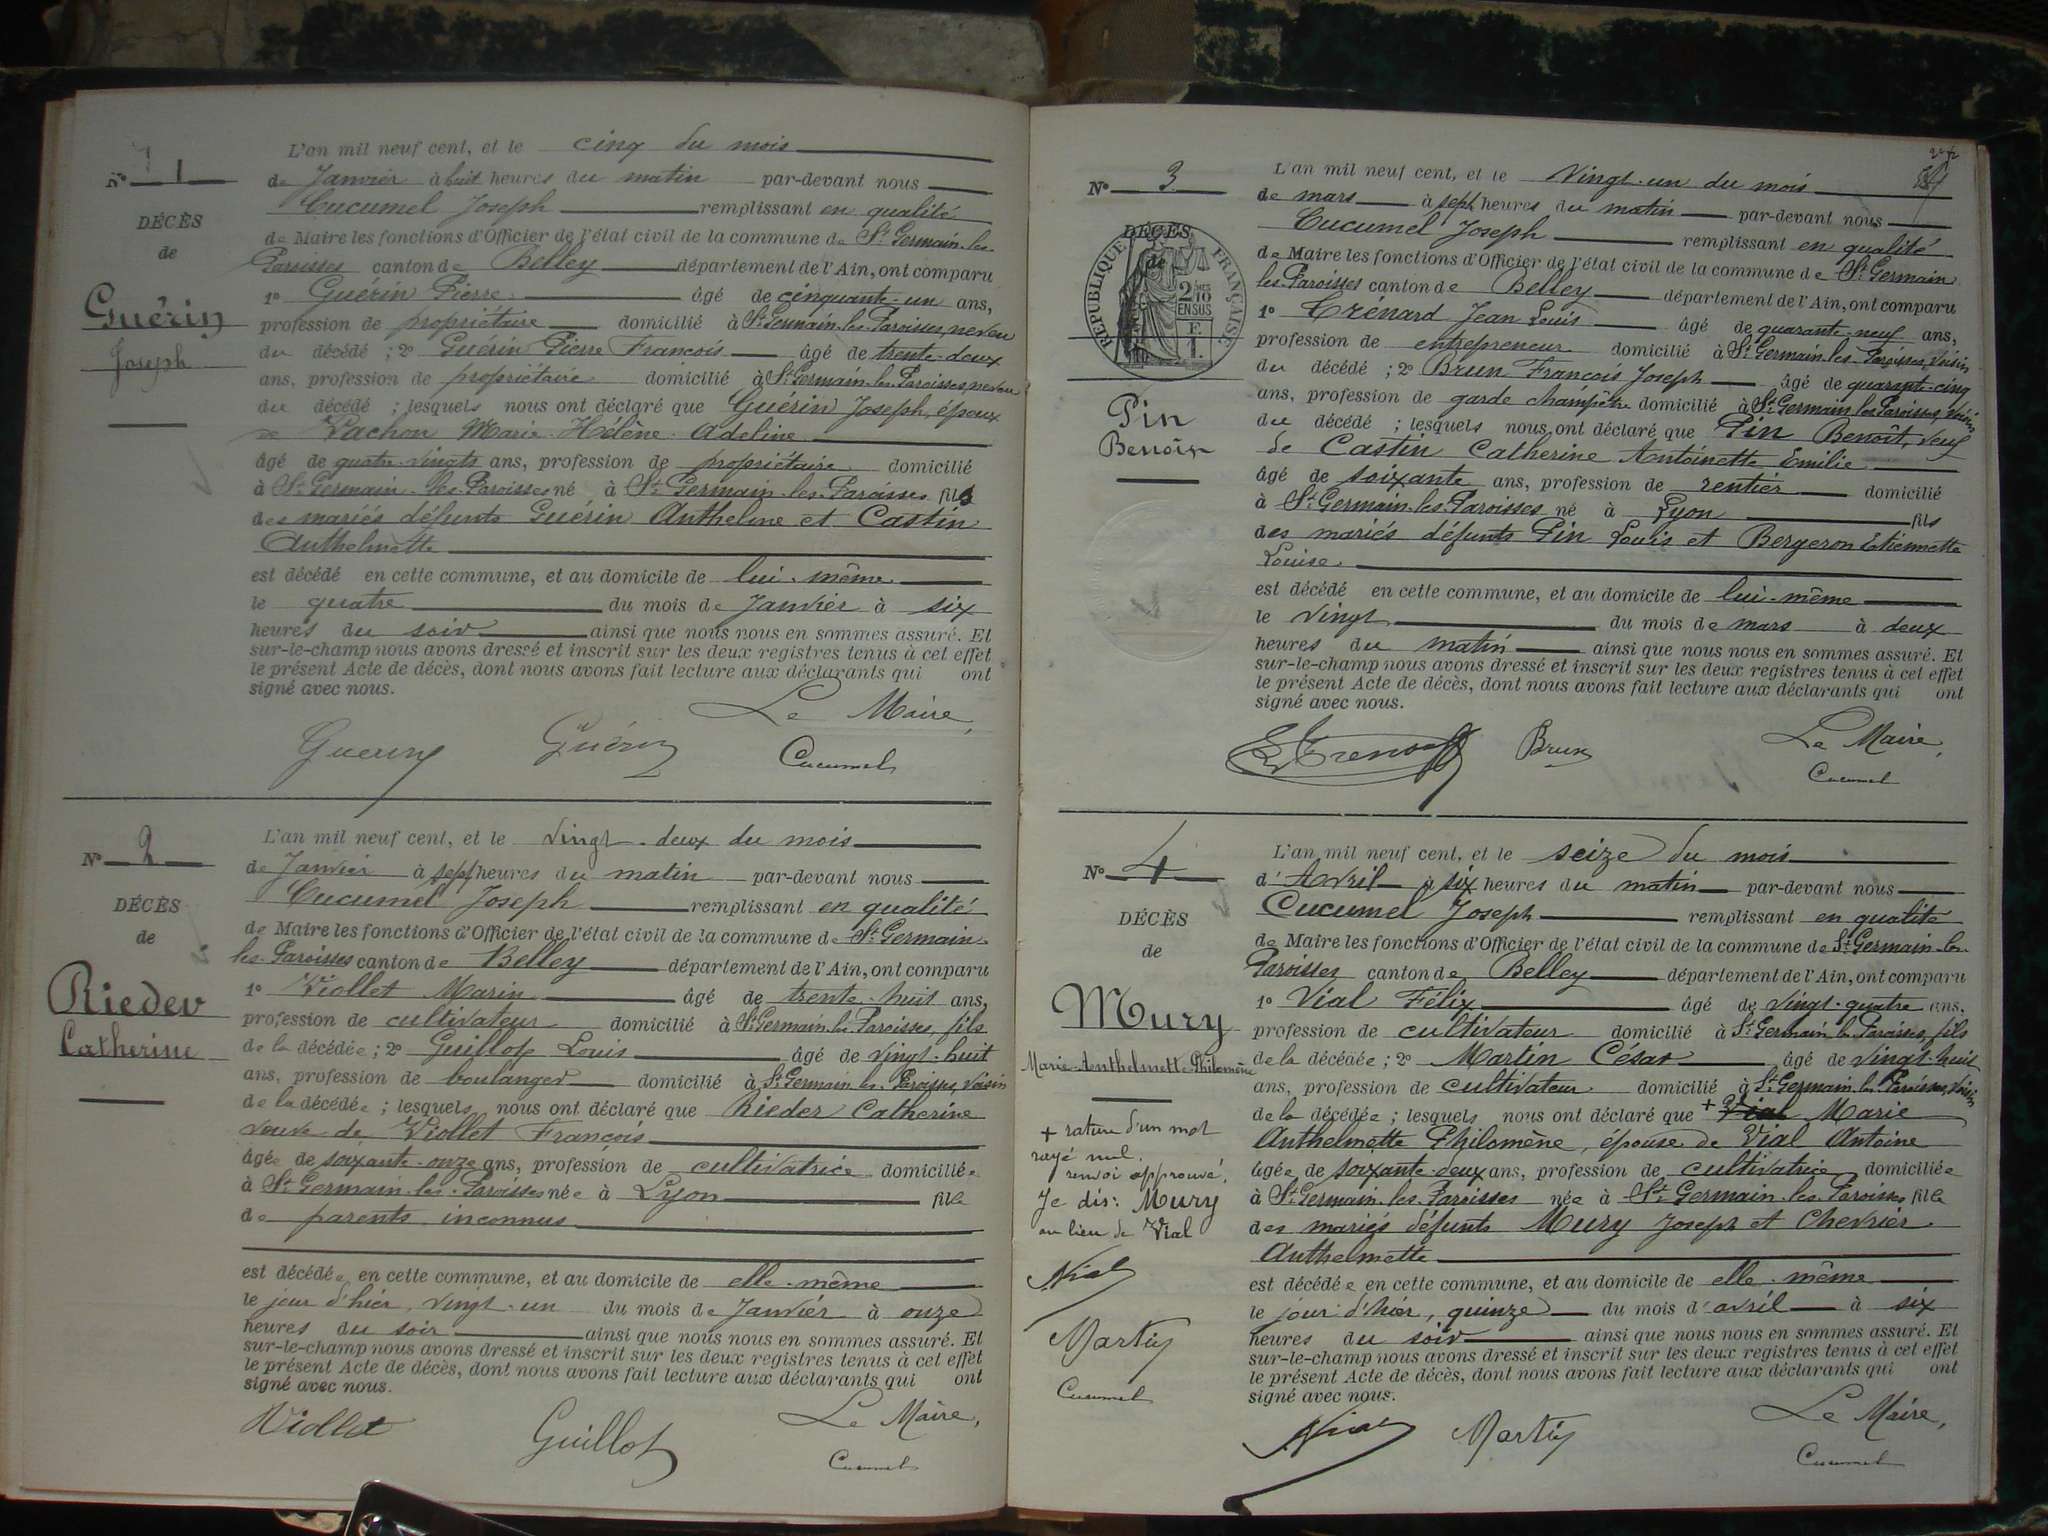 N° 1
DÉCÈS
de
Guérin
Joseph
L'an mil neuf cent, et le cinq du mois
de Janvier à huit heures du matin par-devant nous
Cucumel Joseph remplissant en qualité
de Maire les fonctions d'Officier de l'état civil de la commune de St Germain-les-
Paroisses canton de Belley département de l'Ain, ont comparu
1° Guérin Pierre âgé de cinquante-un ans,
profession de propriétaire domicilié à St Germain-les-Paroisses, neveu
du décédé ; 2° Guérin Pierre François âgé de trente-deux
ans, profession de propriétaire domicilié à St Germain-les-Paroisses, neveu
du décédé ; lesquels nous ont déclaré que Guérin Joseph, époux
de Pachon Marie-Hélène-Adeline
âgé de quatre-vingts ans, profession de propriétaire domicilié
à St Germain-les-Paroisses né à St Germain-les-Paroisses fils
des mariés défunts Guérin Anthelme et Castin
Anthelmette
est décédé en cette commune, et au domicile de lui-même
le quatre du mois de Janvier à six
heures du soir ainsi que nous nous en sommes assuré. Et
sur-le-champ nous avons dressé et inscrit sur les deux registres tenus à cet effet
le présent Acte de décès, dont nous avons fait lecture aux déclarants qui ont
signé avec nous.
Le Maire,
Guerin Guérin Cucumel
N° 2
DÉCÈS
de
Rieder
Catherine
L'an mil neuf cent, et le vingt-deux du mois
de Janvier à sept heures du matin par-devant nous
Cucumel Joseph remplissant en qualité
de Maire les fonctions d'Officier de l'état civil de la commune de St Germain-
les-Paroisses canton de Belley département de l'Ain, ont comparu
1° Viollet Marin âgé de trente-huit ans,
profession de cultivateur domicilié à St Germain-les-Paroisses, fils
de la décédée ; 2° Guillot Louis âgé de vingt-huit
ans, profession de boulanger domicilié à St Germain-les-Paroisses, voisin
de la décédée ; lesquels nous ont déclaré que Rieder Catherine
veuve de Viollet François
âgée de soixante-onze ans, profession de cultivatrice domiciliée
à St Germain-les-Paroisses née à Lyon fille
de parents inconnus
est décédée en cette commune, et au domicile de elle-même
le jour d'hier, vingt-un du mois de Janvier à onze
heures du soir ainsi que nous nous en sommes assuré. Et
sur-le-champ nous avons dressé et inscrit sur les deux registres tenus à cet effet
le présent Acte de décès, dont nous avons fait lecture aux déclarants qui ont
signé avec nous.
Le Maire,
Viollet Guillot Cucumel
N° 3
DÉCÈS
de
RÉPUBLIQUE FRANÇAISE
2 10
EN SUS
Pin
Benoît
L'an mil neuf cent, et le vingt-un du mois
de mars à sept heures du matin par-devant nous
Cucumel Joseph remplissant en qualité
de Maire les fonctions d'Officier de l'état civil de la commune de St Germain
les-Paroisses canton de Belley département de l'Ain, ont comparu
1° Crénard Jean Louis âgé de quarante-neuf ans,
profession de entrepreneur domicilié à St Germain-les-Paroisses, voisin
du décédé ; 2° Brun François Joseph âgé de quarante-cinq
ans, profession de garde champêtre domicilié à St Germain-les-Paroisses, voisin
du décédé ; lesquels nous ont déclaré que Pin Benoît, veuf
de Castin Catherine Antoinette Emilie
âgé de soixante ans, profession de rentier domicilié
à St Germain-les-Paroisses né à Lyon fils
des mariés défunts Pin Louis et Bergeron Etiennette
Louise.
est décédé en cette commune, et au domicile de lui-même
le vingt du mois de mars à deux
heures du matin ainsi que nous nous en sommes assuré. Et
sur-le-champ nous avons dressé et inscrit sur les deux registres tenus à cet effet
le présent Acte de décès, dont nous avons fait lecture aux déclarants qui ont
signé avec nous.
Le Maire,
Brun Cucumel
N° 4
DÉCÈS
de
Mury
Marie-Anthelmette-Philomène
+ rature d'un mot
rayé nul.
renvoi approuvé.
Je dis: Mury
au lieu de Vial
Vial
Martin
Cucumel
L'an mil neuf cent, et le seize du mois
d'Avril à six heures du matin par-devant nous
Cucumel Joseph remplissant en qualité
de Maire les fonctions d'Officier de l'état civil de la commune de St Germain-les-
Paroisses canton de Belley département de l'Ain, ont comparu
1° Vial Félix âgé de vingt-quatre ans,
profession de cultivateur domicilié à St Germain-les-Paroisses, fils
de la décédée ; 2° Martin César âgé de vingt-huit
ans, profession de cultivateur domicilié à St Germain-les-Paroisses, voisin
de la décédée ; lesquels nous ont déclaré que + Vial Marie
Anthelmette Philomène, épouse de Vial Antoine
âgée de soixante-deux ans, profession de cultivatrice domiciliée
à St Germain-les-Paroisses née à St Germain-les-Paroisses fille
des mariés défunts Mury Joseph et Chevrier
Anthelmette
est décédée en cette commune, et au domicile de elle-même
le jour d'hier, quinze du mois d'avril à six
heures du soir ainsi que nous nous en sommes assuré. Et
sur-le-champ nous avons dressé et inscrit sur les deux registres tenus à cet effet
le présent Acte de décès, dont nous avons fait lecture aux déclarants qui ont
signé avec nous.
Le Maire,
Vial Martin Cucumel